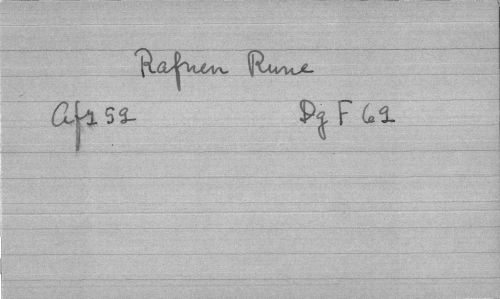 Rafnen Rune
Afr 59 Dg F 62